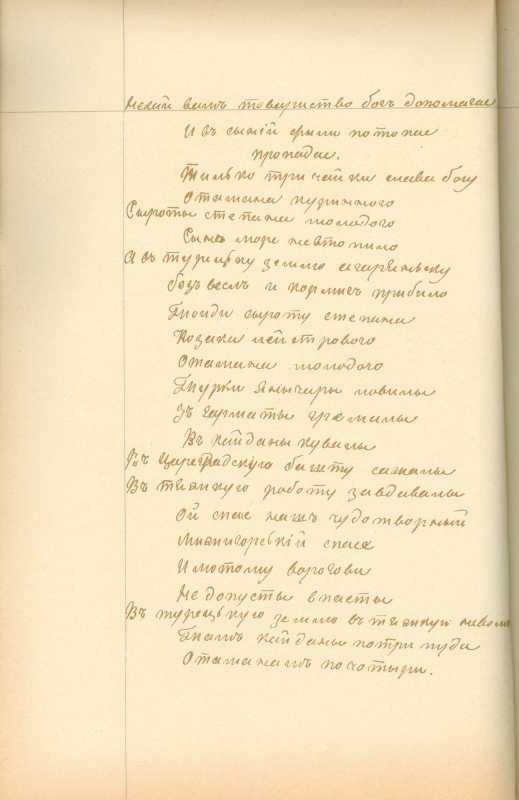 Нехай вамъ товариство богъ допомагае
И въ сыній хвыли потопае
пропадае.
Тилько три чайки слава богу
Отамана куринного
Сыроты степана молодого
Сынь море невтопило
А въ турецьку землю агарянську
безъ веслъ и кормигъ прибило
Тоиди сыроту степана
Козака лейстрового
Отамана молодого
Турки Янычары ловилы
Зъ гарматы гремилы
Въ кайданы кувалы
Въ Цареградскую башту сажалы
Въ тяжкую роботу завдавалы
Ой спас нашъ чудотворный
Мижигорьскій спасе
И лютому ворогови
Не допусты впасты
Въ турецькую землю въ тяжкую неволю
Тамъ кайданы по три пуда
Отаманамъ по чотыри.